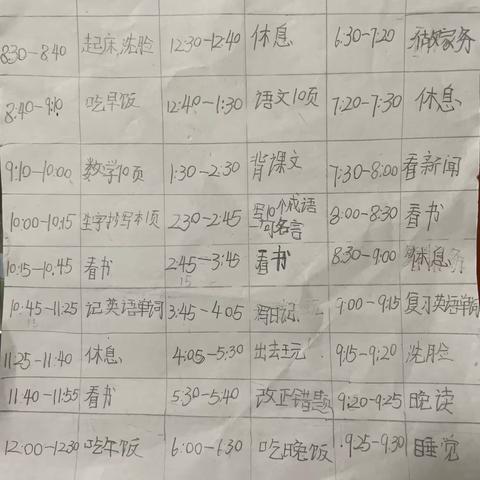 8:30-8:40 起床,洗脸 12:30-12:40 休息 6:30-7:20 做家务
8:40-9:10 吃早饭 12:40-1:30 语文10页 7:20-7:30 休息
9:10-10:00 数学10页 1:30-2:30 背课文 7:30-8:00 看新闻
10:00-10:15 生字抄写本1页 2:30-2:45 写10个成语 8:00-8:30 看书
一句名言
10:15-10:45 看书 2:45-3:45 看书 8:30-9:00 休息
10:45-11:25 记英语单词 3:45-4:05 写日记 9:00-9:15 复习英语单词
11:25-11:40 休息 4:05-5:30 出去玩 9:15-9:20 洗脸
11:40-11:55 看书 5:30-5:40 改正错题 9:20-9:25 晚读
12:00-12:30 吃午饭 6:00-6:30 吃晚饭 9:25-9:30 睡觉